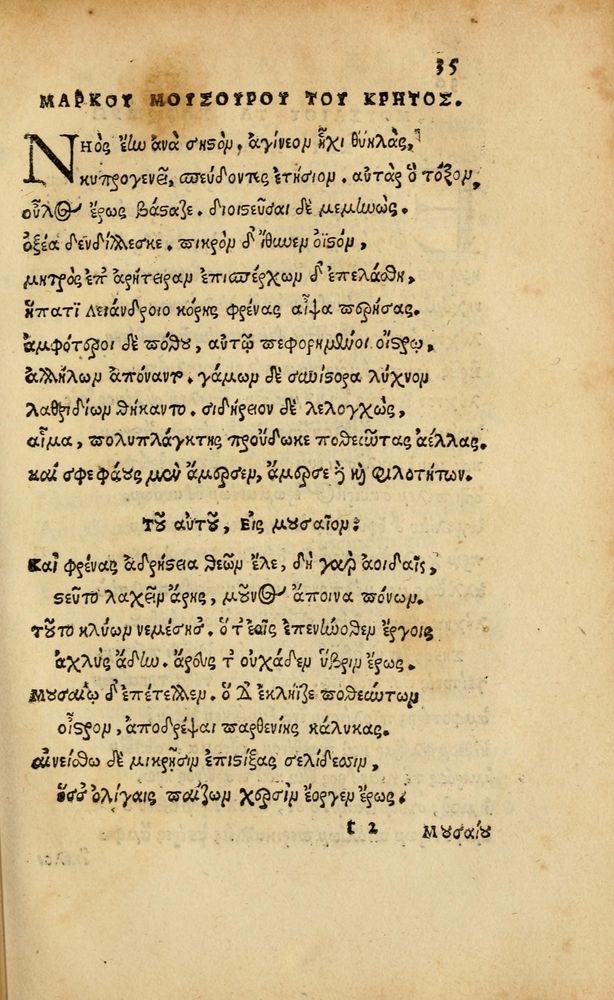 35
ΜΑΡΚΟΥ ΜΟΥΣΟΥΡΟΥ ΤΟΥ ΚΡΗΤΟΣ.
Νηὸς ἔην ἀνὰ σηστὸν, ἀγίνεον ἧχι θυηλὰς,
κυπρογενεῖ, σπεύδοντες ἐτήσιον. αὐτὰρ ὁ τόξον,
οὖλος ἔρως βάσταζε. διοϊστεῦσαι δὲ μεμηνὼς.
ὀξέα δενδίλλεσκε. πικρὸν δ' ἴθυνεν ὀϊστὸν,
μητρὸς ἐπ' ἀρήτειραν ἐπισπέρχων δ' ἐπελάθη,
ἥπατϊ Λειάνδροιο κόρης φρένας αἶψα περήσας.
ἀμφότεροι δὲ πόθου, αὐτῷ πεφορημένοι οἴστρῳ.
ἀλλήλων ἀπόναντο. γάμων δὲ συνίστορα λύχνον
λαθριδίων θήκαντο. σιδήρειον δὲ λελογχὼς,
αἷμα, πολυπλάγκτης προύδωκε ποθεῦντας ἀέλλας.
καί σφε φάους μὲν ἄμερσεν, ἄμερσε δὲ καὶ φιλοτήτων.
Τοῦ αὐτοῦ, Εἰς μουσαῖον:
Καὶ φρένας ἀδρήστεια θεῶν ἕλε, δὴ γὰρ ἀοιδαῖς,
στεῦτο λαχεῖν ἄρης, μοῦνος ἄποινα πόνων.
τοῦτο κλύων νεμέσησ'. ὅτ' ἑαῖς ἐπενήνοθεν ἔργοις
ἀχλὺς ἄδην. ἄρεος τ' οὐχάδεν ὕβριν ἔρως.
μουσαίῳ δ' ἐπέτελλεν. ὁ δ' ἐκλήϊζε ποθεύντων
οἶστρον, ἀποδρέψαι παρθενίκης κάλυκας.
αἰνείσθω δὲ μικρῇσιν ἐπιστίξας σελίδεσσιν,
ὅσσ' ὀλίγαις παίζων χερσὶν ἔοργεν ἔρως.
t 2
Μουσαίου